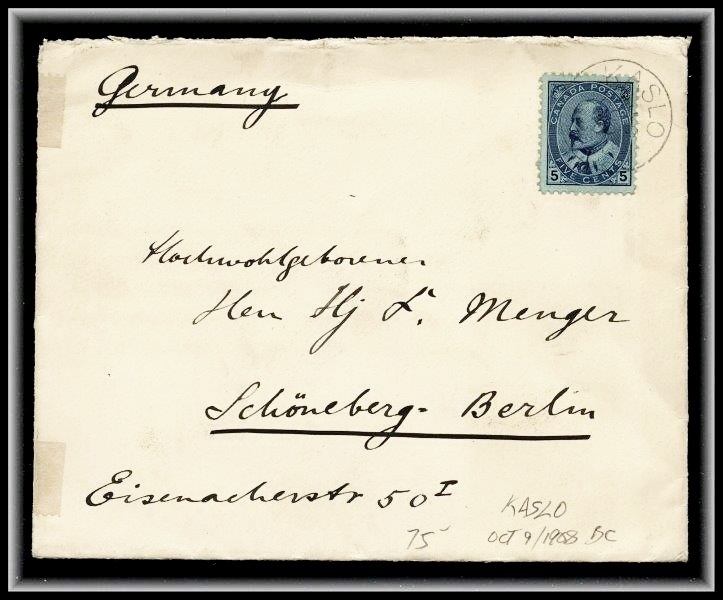 Germany
KASLO
CANADA POSTAGE
5 FIVE CENTS 5
Hochwohlgeborener
Herr Hj Menger
Schöneberg- Berlin
Eisenacherstr 50 I
KASLO
75 OCT 9/1908 BC